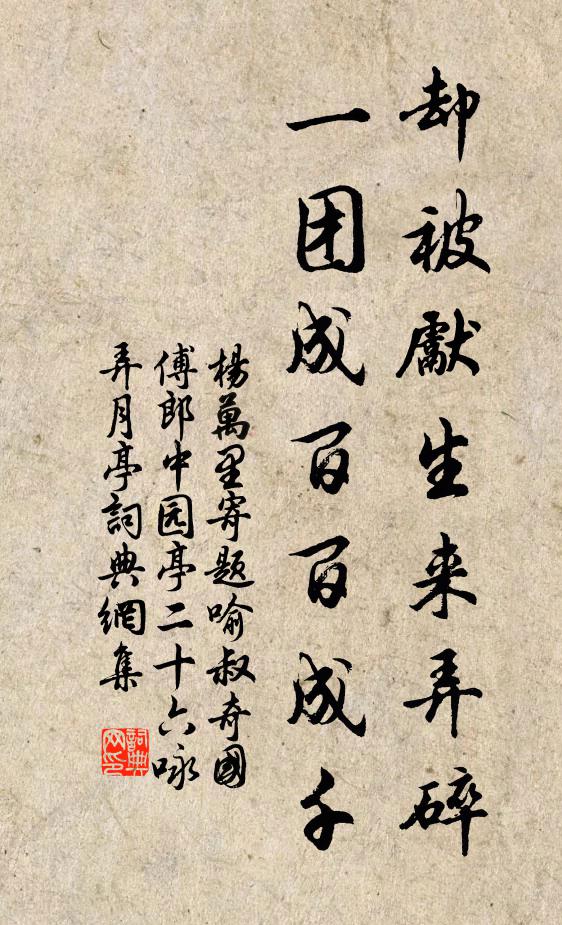 却被獻生来弄碎
一团成百百成千
楊萬里寄題喻叔奇國
傅郎中园亭二十六咏
弄月亭詞典網集
詞典
网印